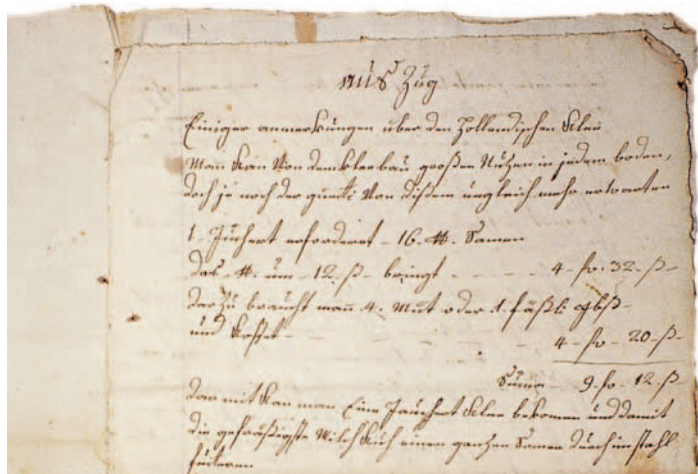 aus Zug
Einiger anmerkungen über den Hollendischen Klee
Man kan Von dem klee bau großen Nutzen in jedem boden,
doch je noch der gueti Von disem ungleich mehr erwarten
1 - Juchert erforderet - 16. ℔. Samen
das ℔. um - 12. ß - bringt - - - - 4 - fr. 32. ß -
dar Zu braucht man 4. Müt oder 1. fäßli gibß -
und kostet - - - - - 4 - fr - 20 - ß -
Suma - 9 - fr - 12 ß
dar mit kan man Eine Jauchert klee bekomen und damit
die gefräßigste Milch kuh einen gantzen Somer durch im stahl
füeteren